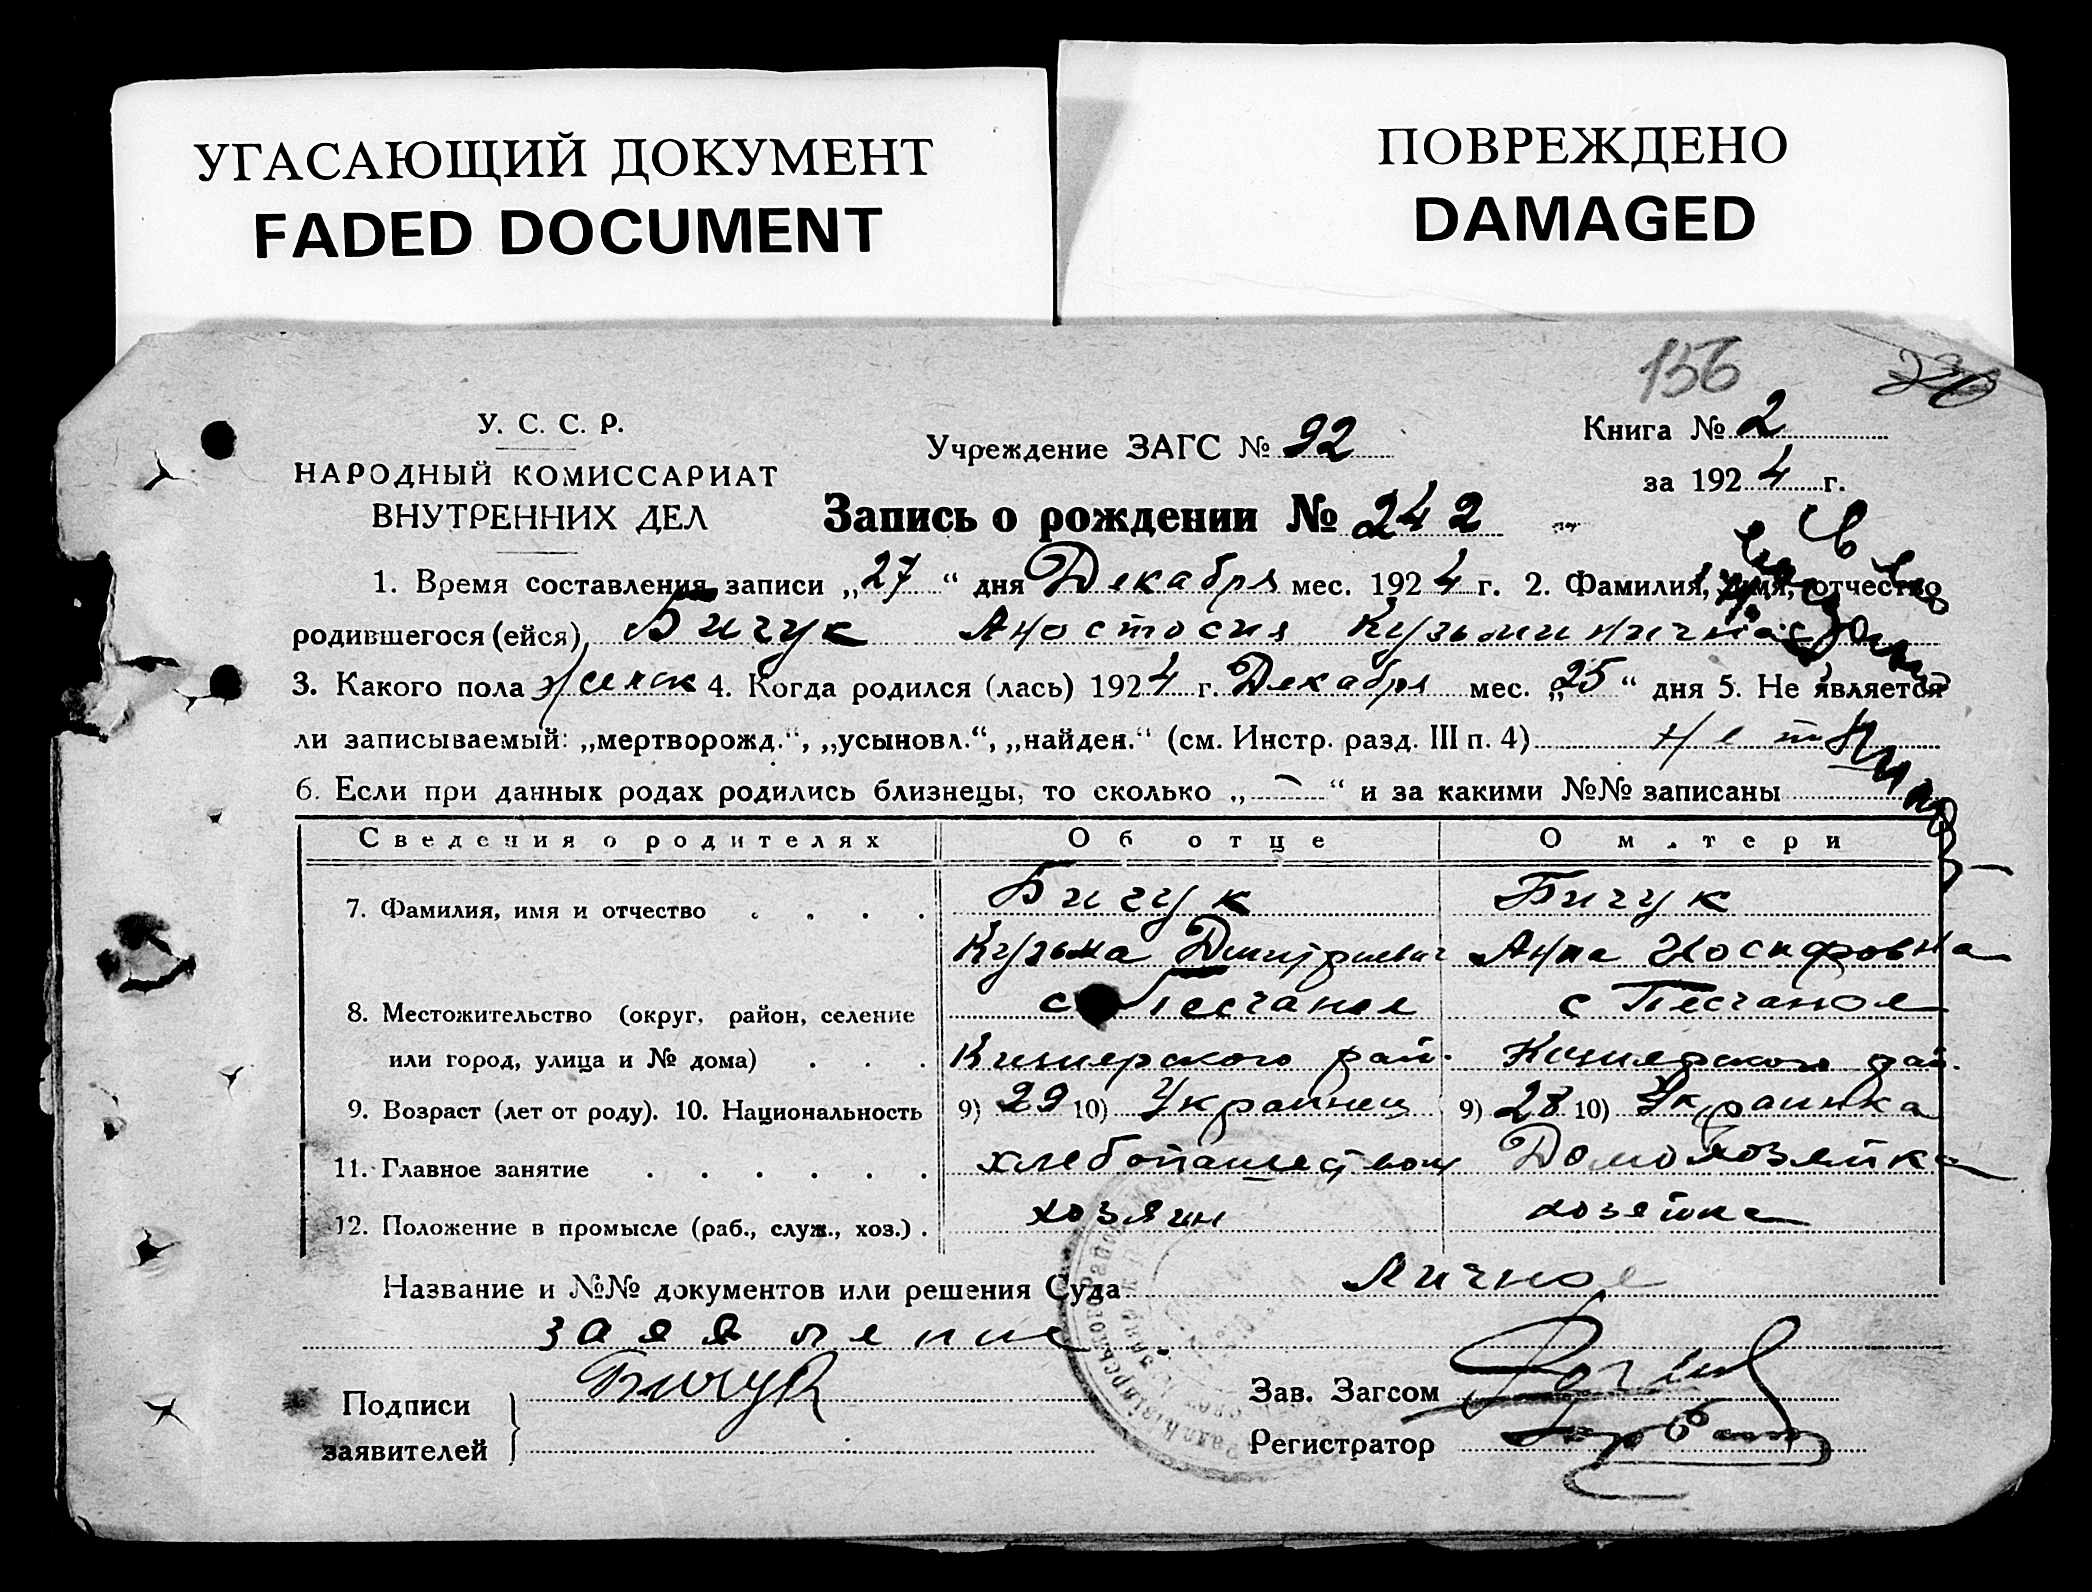 УГАСАЮЩИЙ ДОКУМЕНТ
FADED DOCUMENT
ПОВРЕЖДЕНО
DAMAGED
156
У. С. С. Р.
НАРОДНЫЙ КОМИССАРИАТ
ВНУТРЕННИХ ДЕЛ
Учреждение ЗАГС № 92
Книга № 2
за 1924 г.
Запись о рождении № 242
1. Время составления записи „27“ дня Декабря мес. 1924 г. 2. Фамилия, имя, отчество
родившегося (ейся) Бичук Аностосия
3. Какого пола женск 4. Когда родился (лась) 1924 г. Декабря мес. „25“ дня 5. Не является
ли записываемый: „мертворожд.“, „усыновл.“, „найден.“ (см. Инстр. разд. III п. 4) нет
6. Если при данных родах родились близнецы, то сколько „—“ и за какими №№ записаны
Сведения о родителях Об отце О м.тери
7. Фамилия, имя и отчество . . . . Бичук Бичук
Кузьма Дмитриевич Анна Иосифовна
8. Местожительство (округ, район, селение с Песчаное с Песчаное
или город, улица и № дома) . . . рай. рай.
9. Возраст (лет от роду). 10. Национальность 9) 29 10) Украинец 9) 28 10) Украинка
11. Главное занятие . . . . . . хлебопашеством Домохозяйка
12. Положение в промысле (раб., служ., хоз.) . хозяин хозяйка
Название и №№ документов или решения Суда Личное
заявление
Подписи
заявителей
Бичук
Зав. Загсом
Регистратор